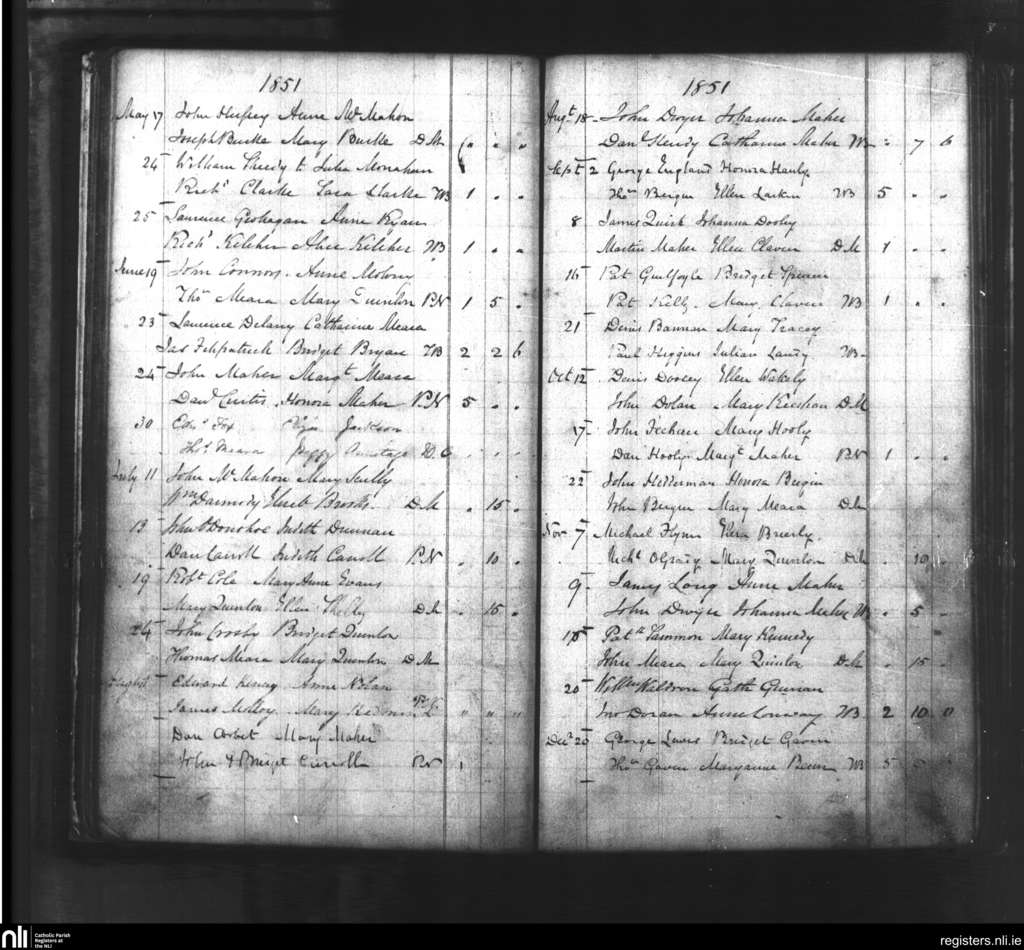 1851
May 17 John Hussey Anne McMahon
Joseph Burke Mary Burke D M
24 William to Julia Monahan
Richd Clarke Sara Clarke WB 1 . .
25 Laurence Geohagan Anne Ryan
Richd Kilcher Alice Kilcher WB 1 . .
June 19 John Connors Anne Molony
Thos Meara Mary Quinlon P.N 1 5 .
23 Laurence Delany Catharine Meara
Jas Fitzpatrick Bridget Bryan WB 2 2 6
24 John Maher Margt Meara
Danl Curtis Honora Maher P.N 5 . .
30 Edwd Fox Eliza Jackson
Thos Meara Peggy Armitage D. C
July 11 John McMahon Mary Scully
Wm Darmody Brooks D.M . 15 .
13 John O'Donohoe Judith Drennan
Dan Carroll Judith Carroll P.N . 10 .
19 Robt Cole Mary Anne Evans
Mary Quinlon Ellen Shelly D.M . 15 .
24 John Crosby Bridget Quinlon
Thomas Meara Mary Quinlon D M
August Edward Anne Nolan
James Molloy Mary
Dan Arbet Mary Maher
John & Bridget Carroll P.N 1
1851
Augt 18 John Dwyer Johanna Maher
Dan Glendy Catharine Maher WB 7 6
Sept 2 George England Honora Hanly
Thos Bergin Ellen Larkin WB 5 . .
8 James Quirk Johanna Dooley
Martin Maher Ellen Claven D.M 1 . .
16 Pat Guilfoyle Bridget Spearin
Pat Kelly Mary Claven WB 1 . .
21 Denis Bannan Mary Tracey
Paul Higgins Julian Landy WB
Oct 12 Denis Dooley Ellen Wakely
John Dolan Mary Keeshan D M
17 John Feehan Mary Hooly
Dan Hooly Margt Maher P.N 1 . .
22 John Hedderman Honora Bergin
John Bergin Mary Meara D.M
Nov 7 Michael Flynn Brierly
Michl O'Grady Mary Quinlon D.M . 10 .
9 James Long Anne Maher
John Dwyer Johanna Maher WB . 5 .
18 Patk Lammon Mary Kennedy
John Meara Mary Quinlon D.M . 15 .
20 Willm Waldron Cath Grennan
Jno Doran Anne Conway WB 2 10 0
Decr 26 George Lewis Bridget Gaven
Thos Gaven Maryanne WB 5 5 .
nli Catholic Parish
Registers at
the NLI
registers.nli.ie